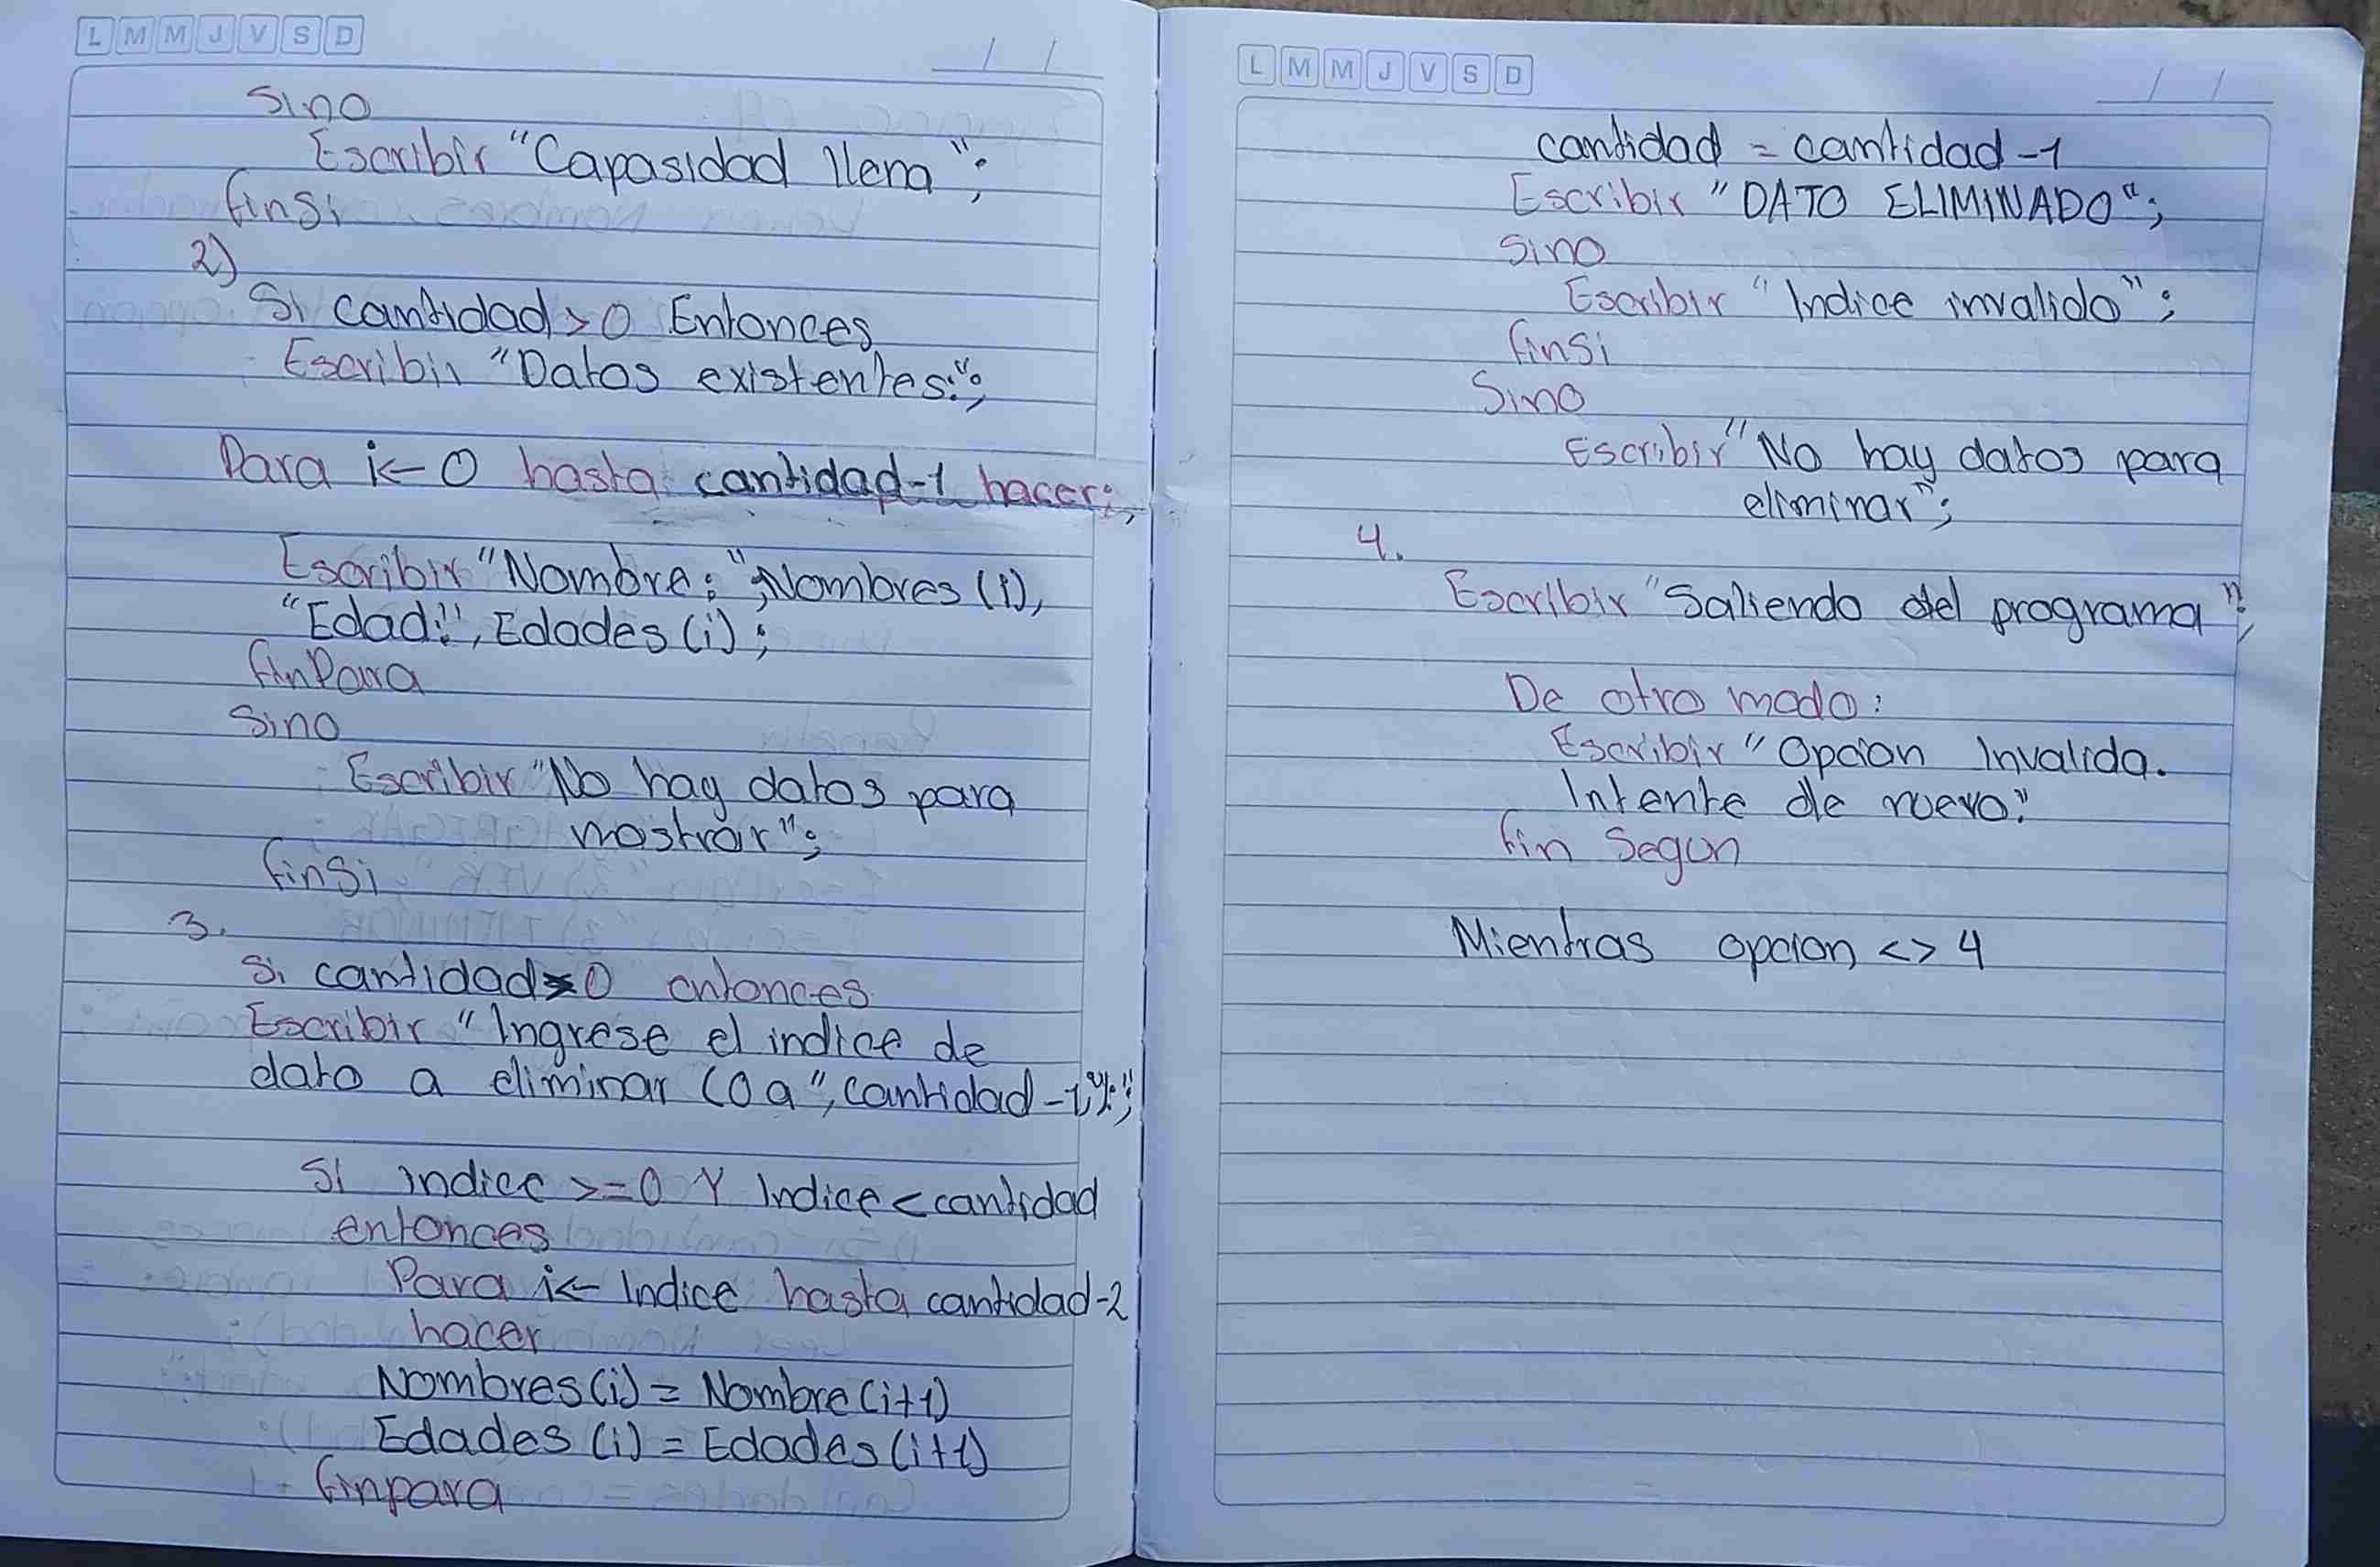 L M M J V S D
/ /
Sino
Escribir "Capasidad llena";
finsi
2)
Si cantidad > 0 Entonces
Escribir "Datos existentes:";
Para i ← 0 hasta cantidad-1 hacer;
Escribir "Nombre: ", Nombres (i),
"Edad:", Edades (i);
finPara
Sino
Escribir "No hay datos para
mostrar";
finSi
3.
Si cantidad > 0 entonces
Escribir "Ingrese el indice de
dato a eliminar (0 a", cantidad -1,"):";
SI indice >= 0 Y Indice < cantidad
entonces
Para i ← Indice hasta cantidad-2
hacer
Nombres(i) = Nombre(i+1)
Edades (i) = Edades(i+1)
finpara
L M M J V S D
/ /
cantidad = cantidad -1
Escribir "DATO ELIMINADO";
Sino
Escribir "Indice invalido";
finsi
Sino
Escribir "No hay datos para
eliminar";
4.
Escribir "Saliendo del programa";
De otro modo:
Escribir "Opcion Invalida.
Intente de nuevo."
fin Segun
Mientras opcion <> 4